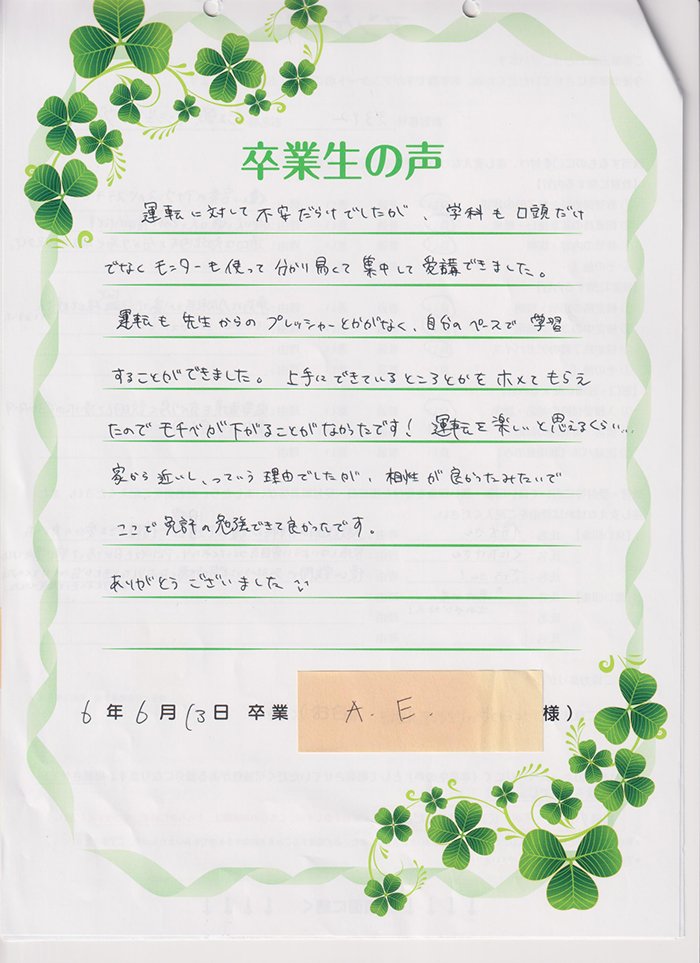 卒業生の声
運転に対して不安だらけでしたが、学科も口頭だけ
でなくモニターも使って分かり易くて集中して受講できました。
運転も先生からのプレッシャーとかがなく、自分のペースで学習
することができました。上手にできているところとかをホメてもらえ
たのでモチベが下がることがなかったです！運転を楽しいと思えるくらい…
家から近いし、っていう理由でしたが、相性が良かったみたいで
ここで免許の勉強できて良かったです。
ありがとうございました
6年6月13日 卒業 A.E. 様）